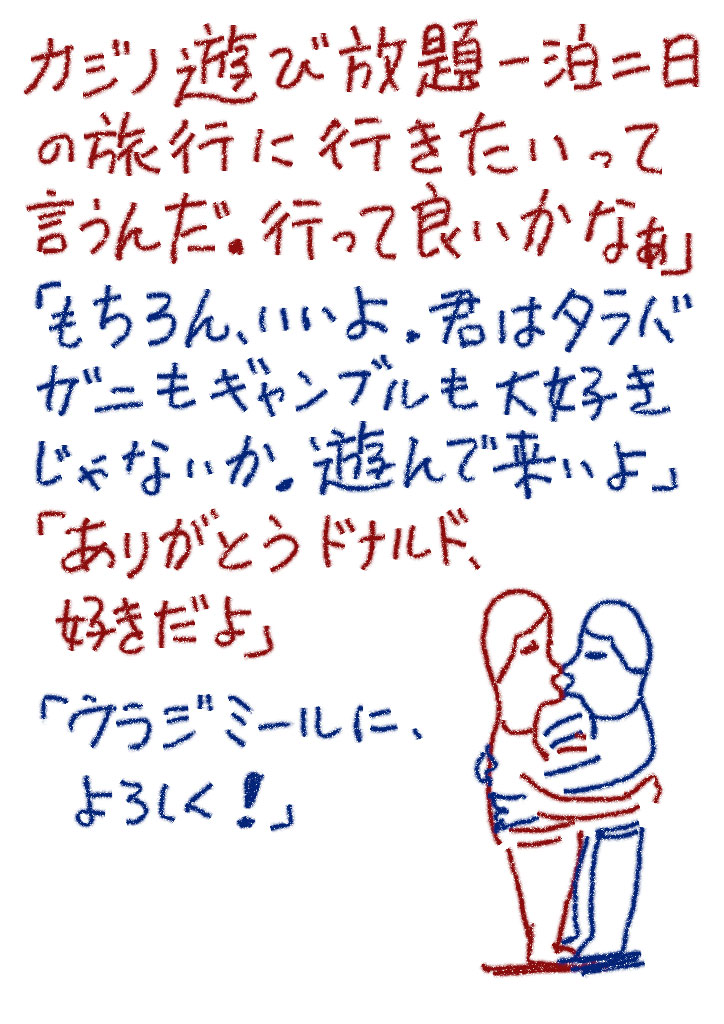 カジノ遊び放題一泊二日
の旅行に行きたいって
言うんだ。行って良いかなぁ」
「もちろん、いいよ。君はタラバ
ガニもギャンブルも大好き
じゃないか。遊んで来いよ」
「ありがとうドナルド、
好きだよ」
「ウラジミールに、
よろしく!」